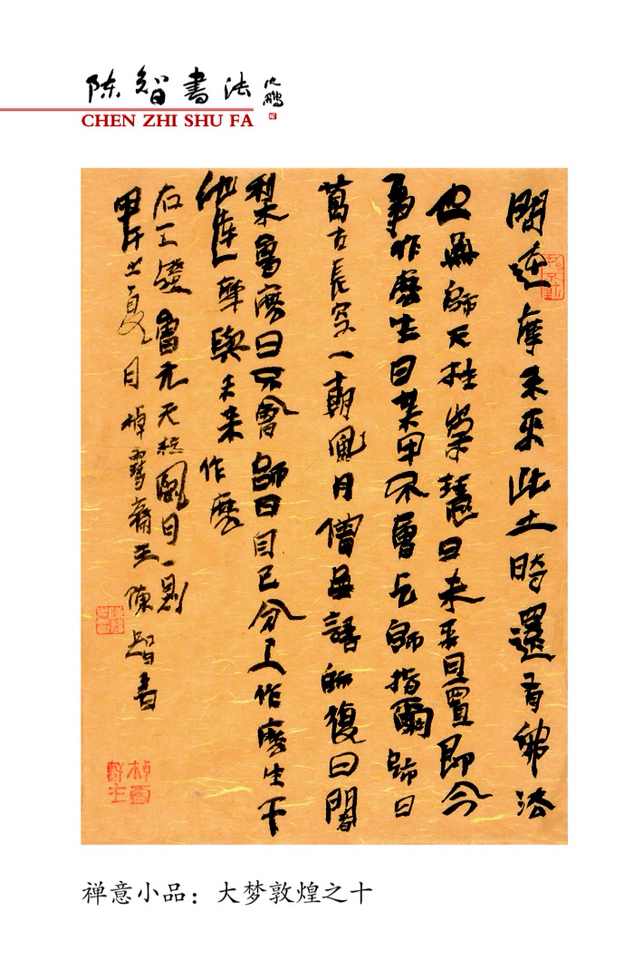 陈智書法 沈鹏
CHEN ZHI SHU FA
問達摩未來此土時還有佛法
也無師天柱崇慧曰未來且置即今
事作麼生曰某甲不會乞師指爾師曰
萬古長空一朝風月僧無語師復曰闍
梨會麼曰不會師曰自己分上作麼生干
他達摩與未來作麼
右五燈會元天柱風月一則
甲午之夏月棹雪齋主陳智書
禅意小品：大梦敦煌之十